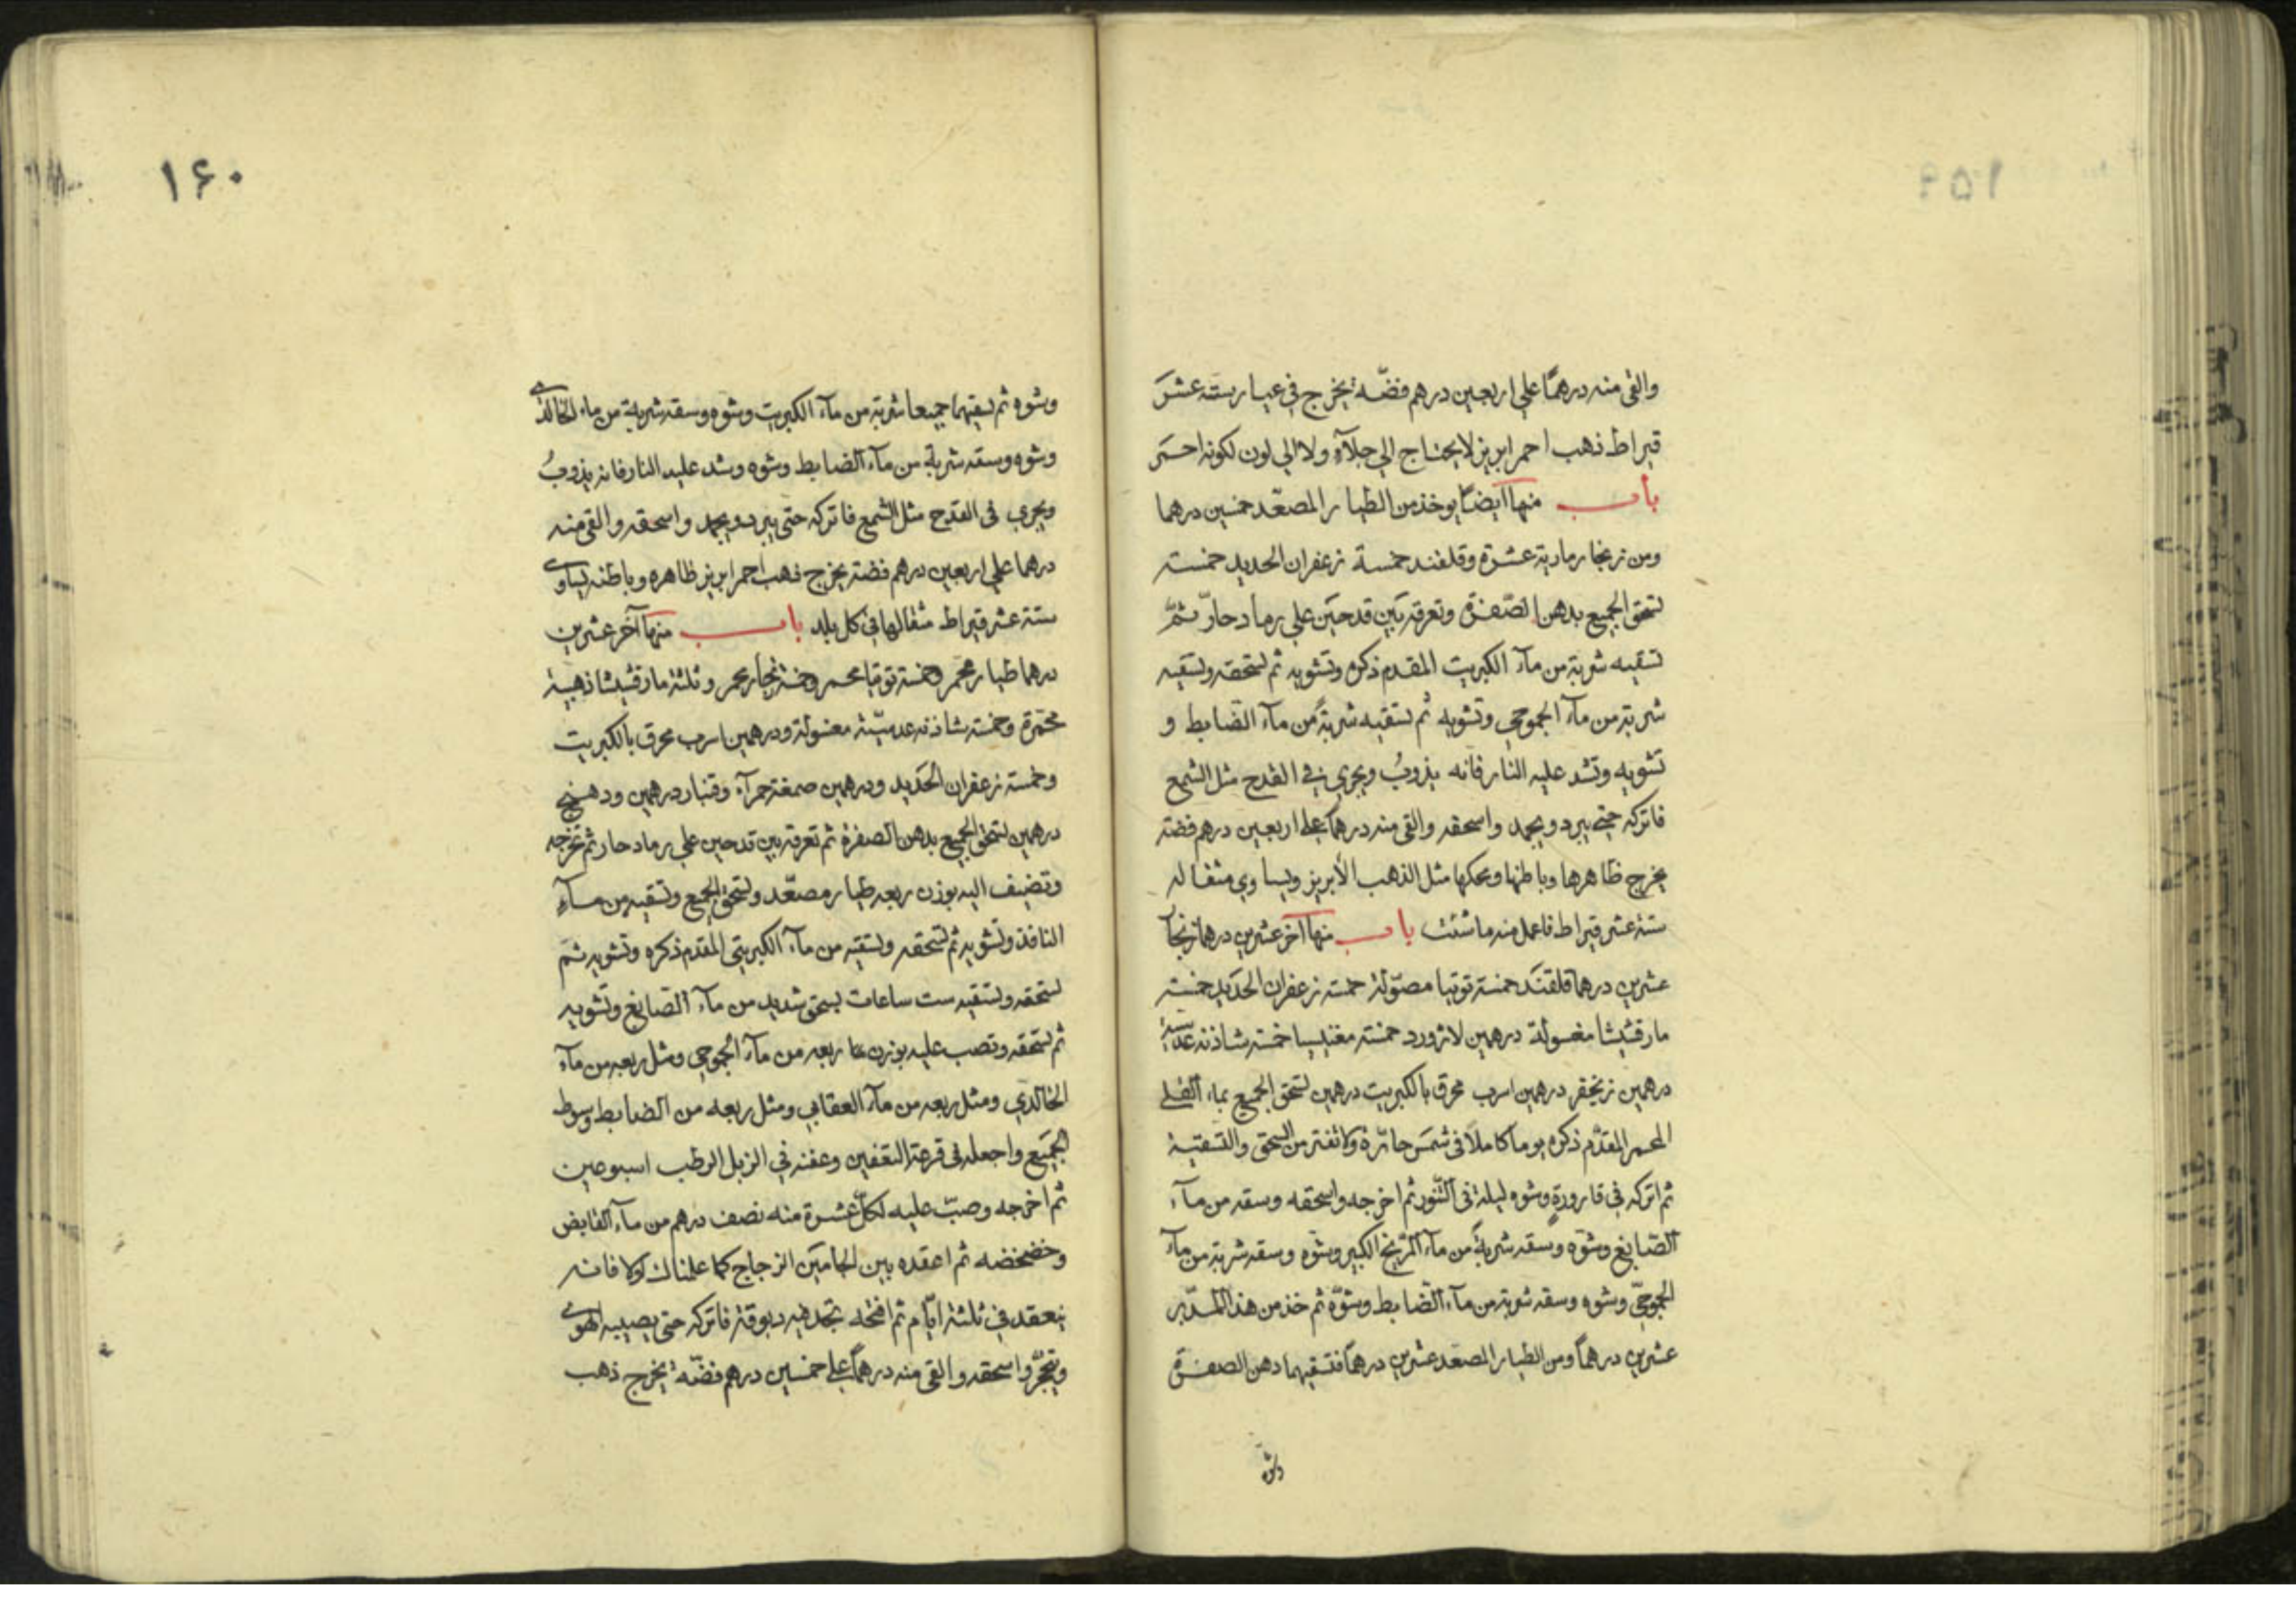 والقى منه درهمًا علي اربعين درهم فضّة يخرج في عيار ستة عشر
قيراط ذهب احمر ابريز لا يحتاج الي جلآءٍ ولا الي لون لكونه احمر
باب منها ايضاً يوخذ من الطيار المصعّد خمسين درهما
ومن زنجار رمادية عشرة وقلقند خمسة زعفران الحديد خمسة
تسحق الجميع بدهن الصّفرة وتعرقه بين قدحين علي رماد حارّ ثمّ
تسقيه شربة من مآء الكبريت المقدم ذكره وتشويه ثم تسحقه وتسقيه
شربة من مآء الجموحي وتشويه ثم تسقيه شربةً من مآء الضابط و
تشويه وتشد عليه النار فانه يذوبُ ويجري في القدح مثل الشمع
فاتركه حتى يبرد ويجمد واسحقه والقى منه درهمًا على اربعين درهم فضة
يخرج ظاهرها وباطنها ومحكها مثل الذهب الأبريز ويساوي مثقاله
ستة عشر قيراط فاعمل منه ما شئت باب منها آخر عشرين درهما زنجار
عشرين درهما قلقند خمسة توتيا مصوّلة خمسة زعفران الحديد خمسة
مارقشيشا مغسولة درهمين لازورد خمسة مغنيسيا خمسة شاذنه عدسية
درهمين زنجفر درهمين اسرب محرق بالكبريت درهمين تسحق الجميع بماء القلي
المحمر المقدّم ذكره يوماً كاملاً في شمس حارّة ولا تفتر من السحق والتسقية
ثم اتركه في قارورةٍ وشوه ليلة في التّنور ثم اخرجه واسحقه وسقه من مآء
الصّابغ وشوّه وسقه شربةً من مآء المرّيخ الكبير وشوّه وسقه شربة من مآء
الجموحيّ وشوه وسقه شربة من مآء الضابط وشوّه ثم خذ من هذا المدبّر
عشرين درهماً ومن الطيار المصعّد عشرين درهماً فتسقيهما دهن الصفرة
وشوه
١۶٠
وشوه ثم تسقيهما جميعا شربة من مآء الكبريت وشوّه وسقه شربة من ماء الخالدي
وشوه وسقه شربة من مآء الضابط وشوه وشد عليه النار فانه يذوبُ
ويجري في القدح مثل الشمع فاتركه حتى يبرد ويجمد واسحقه والقى منه
درهما علي اربعين درهم فضة يخرج ذهب احمر ابريز ظاهره وباطنه يساوي
ستة عشر قيراط مثقالها في كل بلد باب منها آخر عشرين
درهما طيار محمر وخمسة توتيا محمر وخمسة زنجار محمر وثلثة مارقشيشا ذهبية
محمّرة وخمسة شاذنه عدسيّة مغسولة ودرهمين اسرب محرق بالكبريت
وخمسة زعفران الحديد ودرهمين صمغة حمرآء وقنبار درهمين ودهنج
درهمين تسحق الجميع بدهن الصفرة ثم تعرقه بين قدحين علي رماد حار ثم تخرجه
وتضيف اليه بوزن ربعه طيار مصعّد وتسحق الجميع وتسقيه من مآء
النافذ وتشويه ثم تسحقه وتسقيه من مآء الكبريتي المقدم ذكره وتشويه ثم
تسحقه وتسقيه ست ساعات بسحق شديد من مآء الصابغ وتشويه
ثم تسحقه وتصب عليه بوزن ربعه من مآء الجموحي ومثل ربعه من مآء
الخالدي ومثل ربعه من مآء العقابي ومثل ربعه من الضابط وسوط
الجميع واجعله في قرعة التعفين وعفنه في الزبل الرطب اسبوعين
ثم اخرجه وصبّ عليه لكل عشرة منه نصف درهم من مآء القابض
وخضخضه ثم اعقده بين الجامين الزجاج كما علمناك اولا فانه
ينعقد في ثلثة ايّام ثم افتحه تجد فيه دبوقة فاتركه حتى يصيبه الهوى
ويتحجّر واسحقه والقى منه درهماً على خمسين درهم فضّة يخرج ذهب